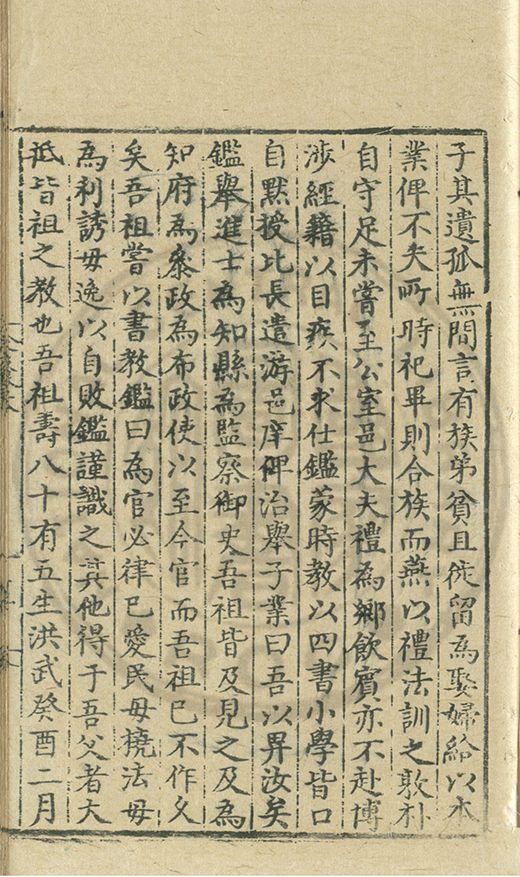 子其遺孤無間言有族弟貧且徙留為娶婦給以本
業俾不失所時祀畢則合族而燕以禮法訓之敦朴
自守足未嘗至公室邑大夫禮為鄉飲賓亦不赴博
涉經籍以目疾不求仕鑑蒙時教以四書小學皆口
自默授比長遣游邑庠俾治舉子業曰吾以畀汝矣
鑑舉進士為知縣為監察御史吾祖皆及見之及為
知府為叅政為布政使以至今官而吾祖已不作久
矣吾祖嘗以書教鑑曰為官必律已愛民毋撓法毋
為利誘毋逸以自敗鑑謹識之其他得于吾父者大
抵皆祖之教也吾祖壽八十有五生洪武癸酉二月